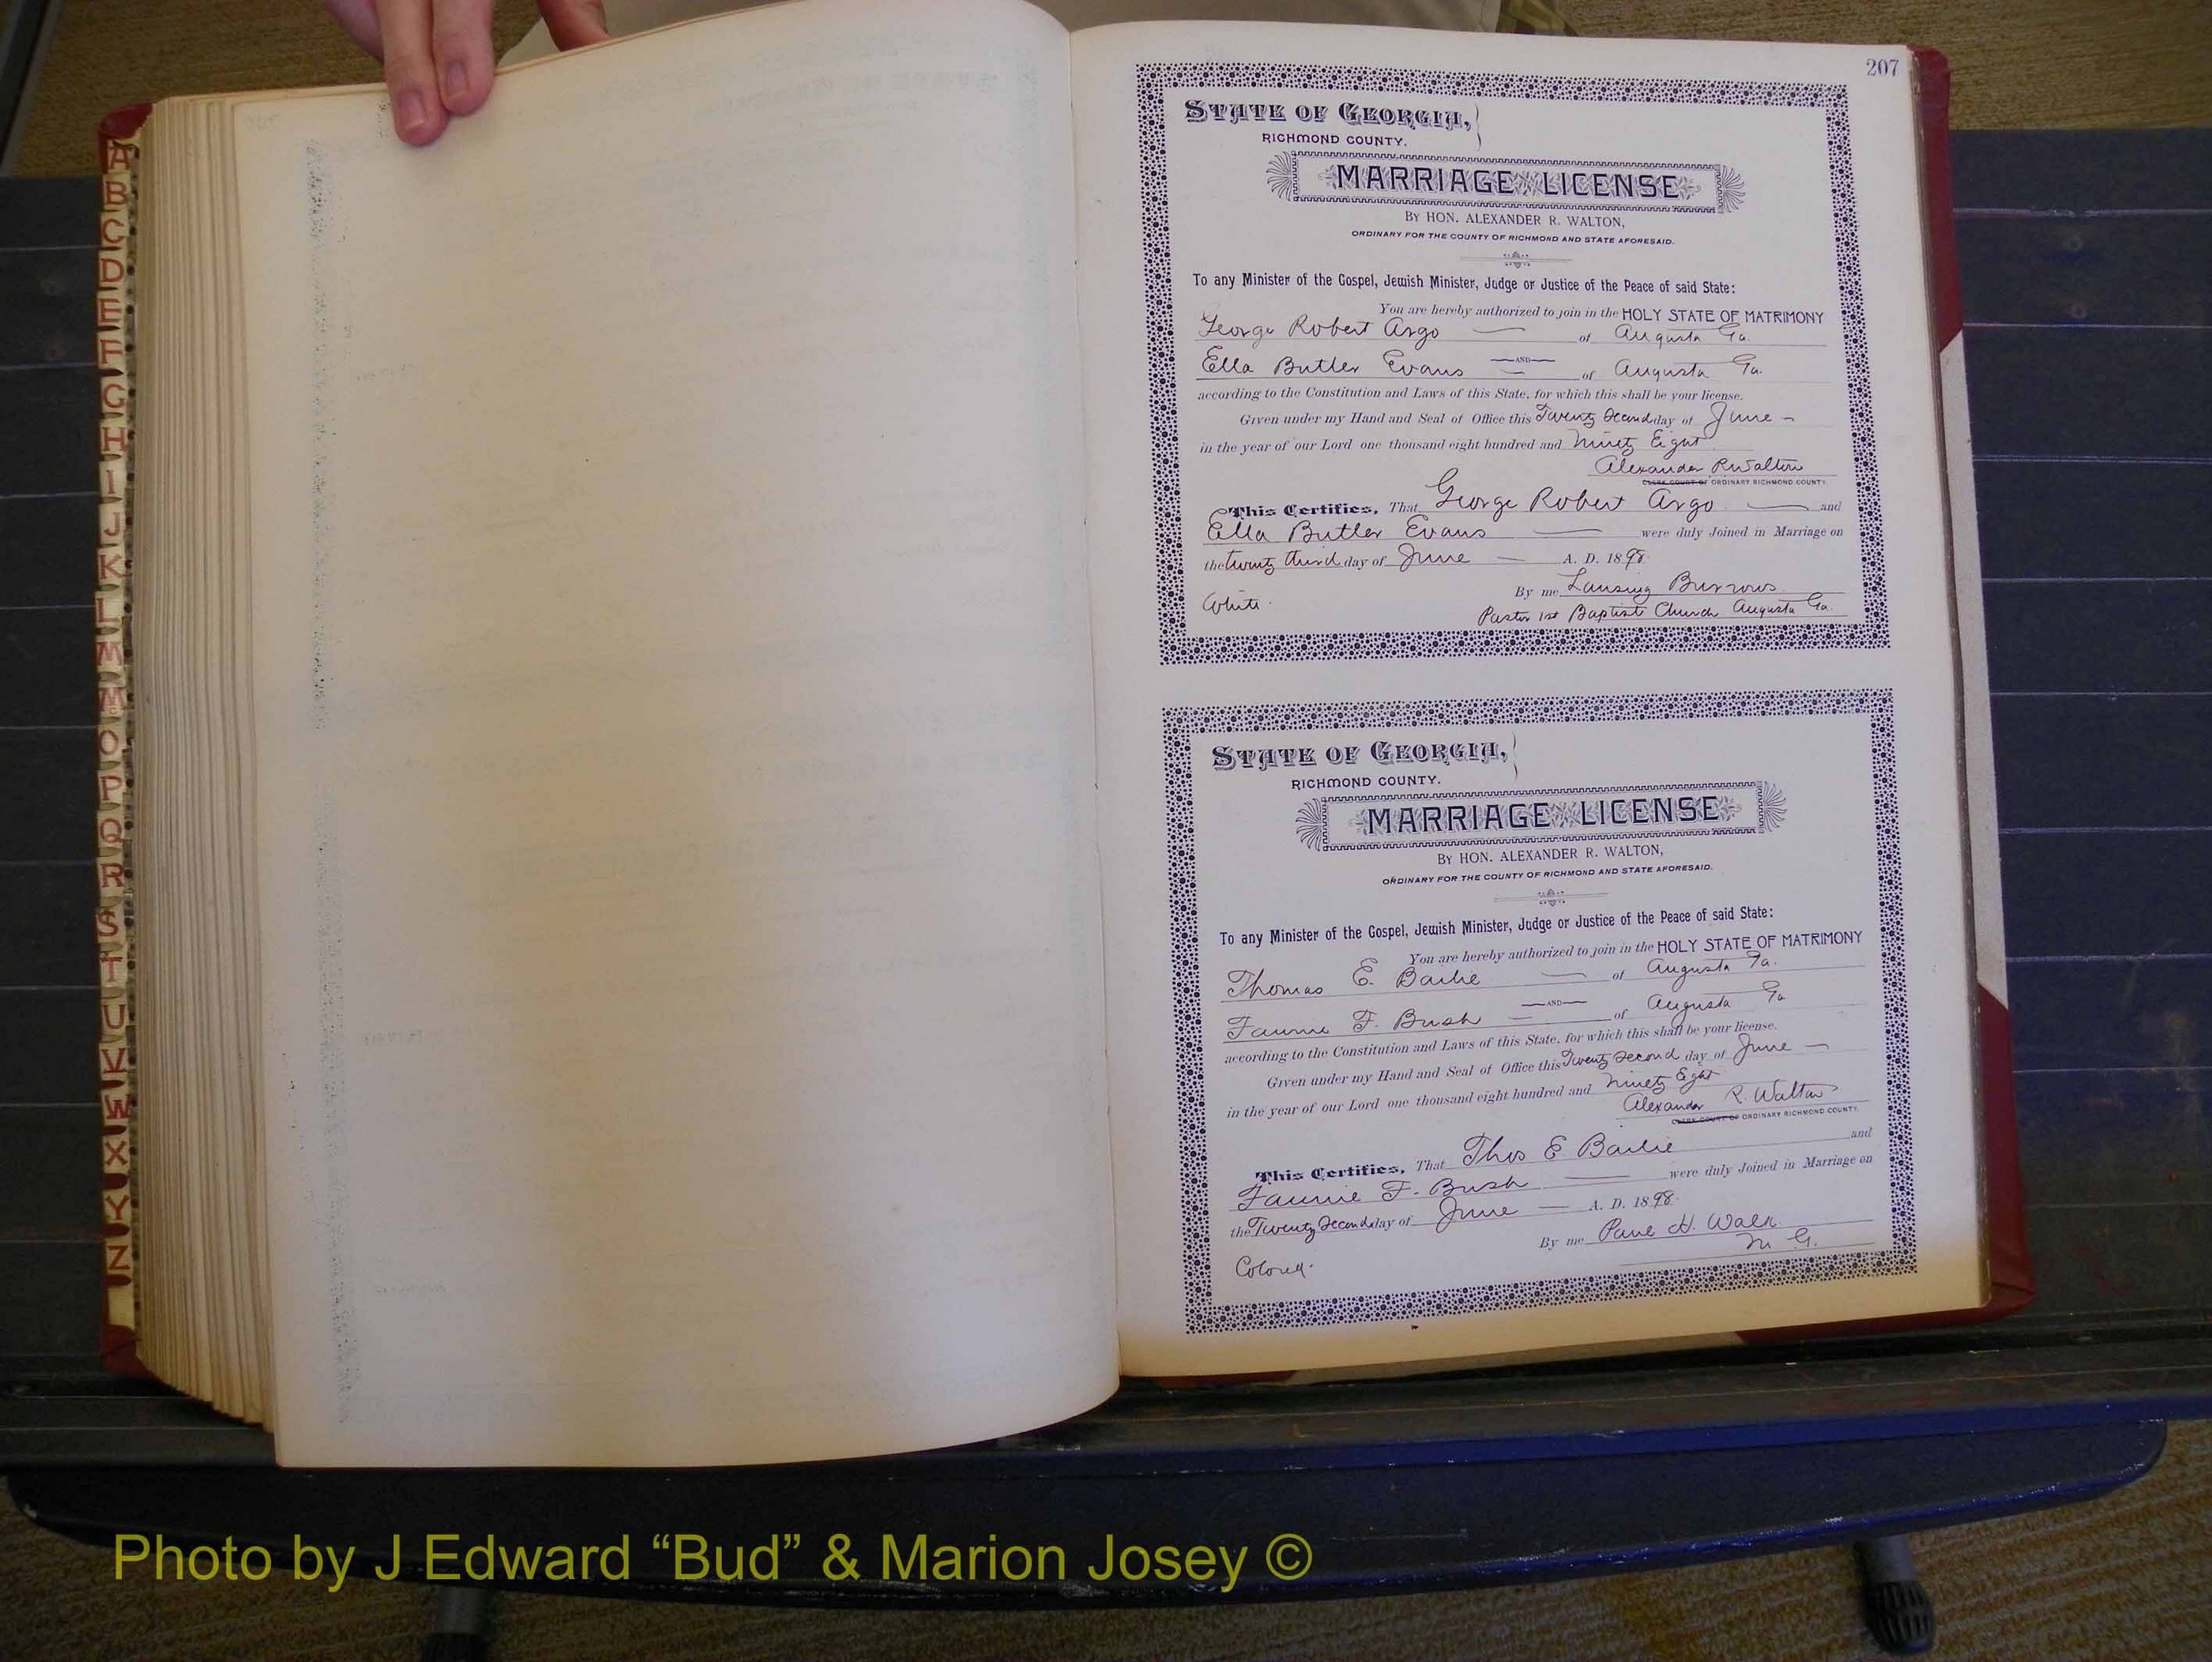 A
B
C
D
E
F
G
H
I
J
K
L
M
Mc
O
P
Q
R
S
T
U
V
W
X
Y
Z
207
STATE OF GEORGIA,
RICHMOND COUNTY.
MARRIAGE LICENSE
BY HON. ALEXANDER R. WALTON,
ORDINARY FOR THE COUNTY OF RICHMOND AND STATE AFORESAID.
To any Minister of the Gospel, Jewish Minister, Judge or Justice of the Peace of said State:
You are hereby authorized to join in the HOLY STATE OF MATRIMONY
George Robert Argo — of Augusta Ga.
—AND—
Ella Butler Evans — of Augusta Ga.
according to the Constitution and Laws of this State, for which this shall be your license.
Given under my Hand and Seal of Office this Twenty Second day of June —
in the year of our Lord one thousand eight hundred and Ninety Eight
Alexander R Walton
CLERK COURT OF ORDINARY RICHMOND COUNTY.
This Certifies, That George Robert Argo — and
Ella Butler Evans — were duly Joined in Marriage on
the twenty third day of June — A. D. 1898
By me Lansing Burrows
White. Pastor 1st Baptist Church Augusta Ga.
STATE OF GEORGIA,
RICHMOND COUNTY.
MARRIAGE LICENSE
BY HON. ALEXANDER R. WALTON,
ORDINARY FOR THE COUNTY OF RICHMOND AND STATE AFORESAID.
To any Minister of the Gospel, Jewish Minister, Judge or Justice of the Peace of said State:
You are hereby authorized to join in the HOLY STATE OF MATRIMONY
Thomas E. Bailie — of Augusta Ga.
—AND—
Fannie F. Bush — of Augusta Ga
according to the Constitution and Laws of this State, for which this shall be your license.
Given under my Hand and Seal of Office this Twenty Second day of June —
in the year of our Lord one thousand eight hundred and Ninety Eight
Alexander R. Walton
CLERK COURT OF ORDINARY RICHMOND COUNTY.
This Certifies, That Thos E Bailie and
Fannie F. Bush — were duly Joined in Marriage on
the Twenty Second day of June — A. D. 1898
By me Paul H. Walk
M. G.
Colored.
Photo by J Edward “Bud” & Marion Josey ©